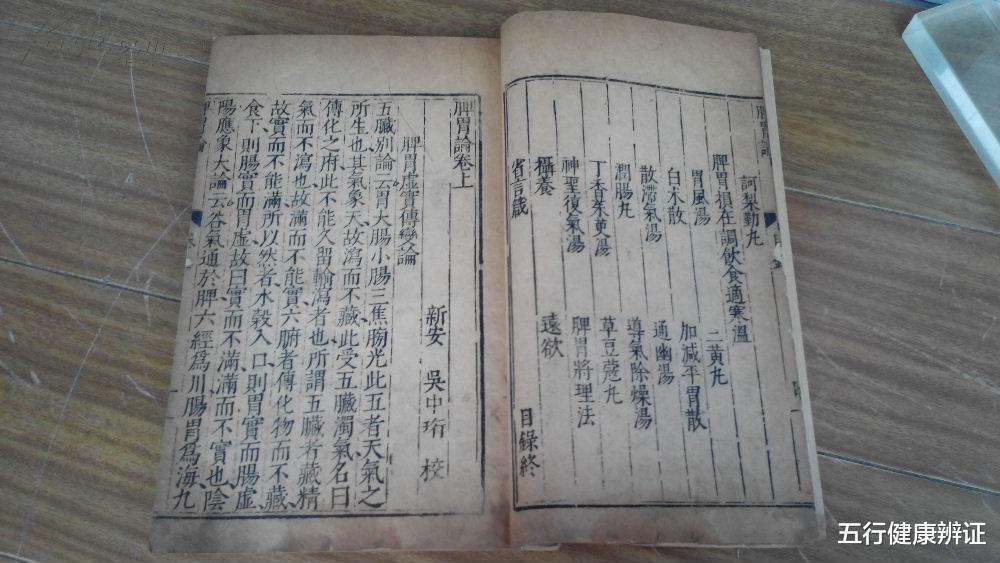 脾胃論
訶梨勒丸
脾胃損在調飲食適寒溫
胃風湯
二黃丸
白朮散
加減平胃散
散滯氣湯
通幽湯
潤腸丸
導氣除燥湯
丁香茱萸湯
草豆蔻丸
神聖復氣湯
脾胃將理法
攝養
遠欲
省言箴
目錄終
脾胃論卷上
新安 吳中珩 校
脾胃虛實傳變論
五臟別論云胃大腸小腸三焦膀光此五者天氣之
所生也其氣象天故瀉而不藏此受五臟濁氣名曰
傳化之府此不能久留輸瀉者也所謂五臟者藏精
氣而不瀉也故滿而不能實六腑者傳化物而不藏
故實而不能滿所以然者水穀入口則胃實而腸虛
食下則腸實而胃虛故曰實而不滿滿而不實也陰
陽應象大論云谷氣通於脾六經為川腸胃為海九
五行健康辨证